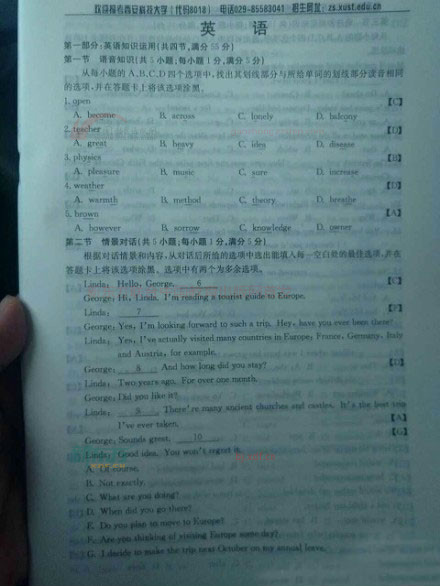 欢迎报考西安科技大学（代码8018） 电话029-85583041 招生网址：zs.xust.edu.cn
英 语
第一部分：英语知识运用（共四节，满分 55 分）
第一节 语音知识（共 5 小题；每小题 1 分，满分 5 分）
从每小题的 A、B、C、D 四个选项中，找出其划线部分与所给单词的划线部分读音相同
的选项，并在答题卡上将该选项涂黑。
1. open 【C】
A. become B. across C. lonely D. balcony
2. teacher 【D】
A. great B. heavy C. idea D. disease
3. physics 【B】
A. pleasure B. music C. sure D. increase
4. weather 【D】
A. warmth B. method C. theory D. breathe
5. brown 【A】
A. however B. sorrow C. knowledge D. owner
第二节 情景对话（共 5 小题；每小题 1 分，满分 5 分）
根据对话情景和内容，从对话后所给的选项中选出能填入每一空白处的最佳选项，并在
答题卡上将该选项涂黑。选项中有两个为多余选项。
Linda: Hello, George. 6 【C】
George: Hi, Linda. I'm reading a tourist guide to Europe.
Linda: 7 【F】
George: Yes, I'm looking forward to such a trip. Hey, have you ever been there?
Linda: Yes, I've actually visited many countries in Europe; France, Germany, Italy
and Austria, for example.
George: 8 And how long did you stay? 【D】
Linda: Two years ago. For over one month.
George: Did you like it?
Linda: 9 There're many ancient churches and castles. It's the best trip
I've ever taken. 【A】
George: Sounds great. 10 【G】
Linda: Good idea. You won't regret it.
A. Of course.
B. Not exactly.
C. What are you doing?
D. When did you go there?
E. Do you plan to move to Europe?
F. Are you thinking of visiting Europe some day?
G. I decide to make the trip next October on my annual leave.